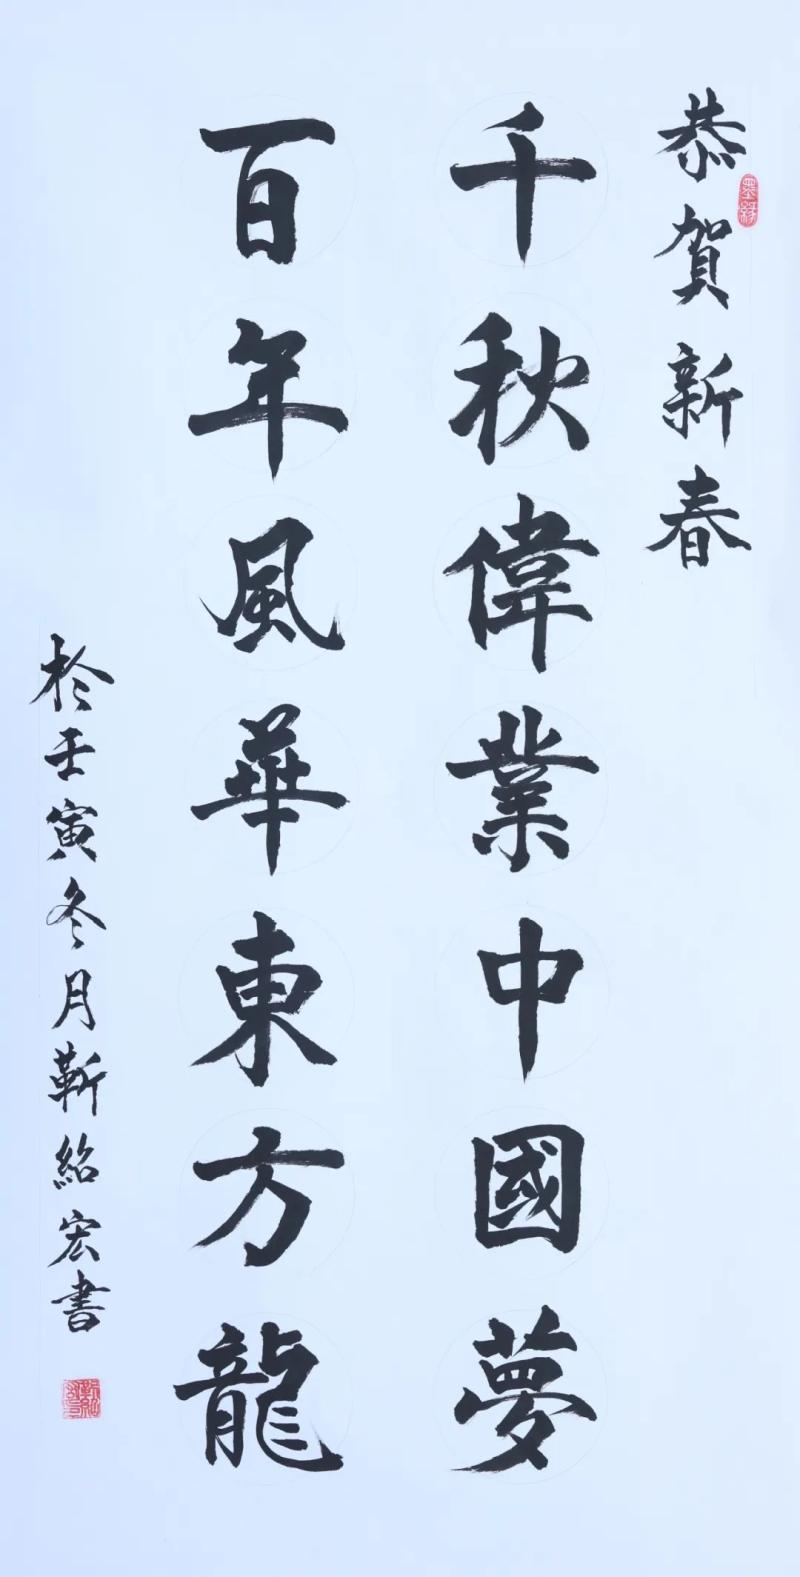 恭賀新春
千秋偉業中國夢
百年風華東方龍
於壬寅冬月靳紹宏書